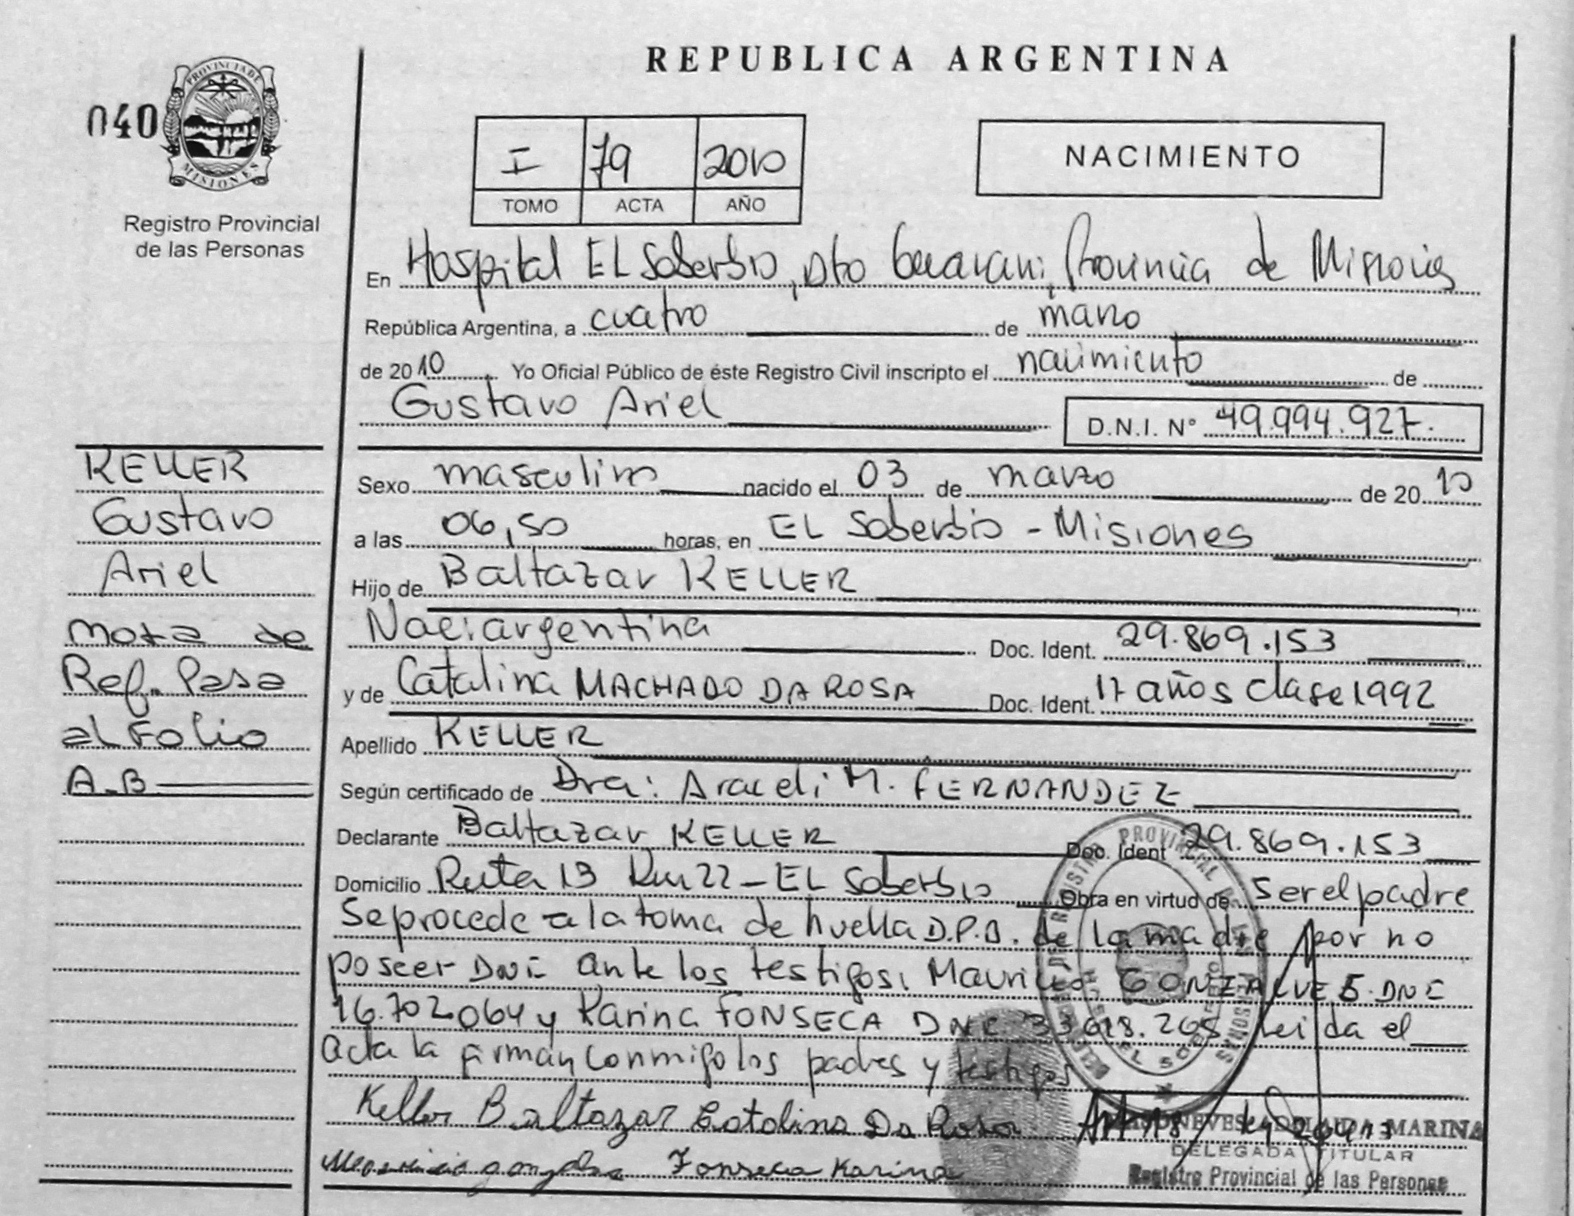 REPUBLICA ARGENTINA
040
PROVINCIA DE
MISIONES
Registro Provincial
de las Personas
I 79 2010
TOMO ACTA AÑO
NACIMIENTO
En Hospital EL Soberbio, Dto Guarani, Provincia de Misiones
República Argentina, a cuatro de marzo
de 2010 Yo Oficial Público de éste Registro Civil inscripto el nacimiento de
Gustavo Ariel
D.N.I. Nº 49.994.927.
KELLER
Gustavo
Ariel
Nota de
Ref. Pasa
al Folio
A.B
Sexo masculino nacido el 03 de marzo de 2010
a las 06,50 horas, en EL Soberbio - Misiones
Hijo de Baltazar KELLER
Naci: argentina Doc. Ident. 29.869.153
y de Catalina MACHADO DA ROSA Doc. Ident. 17 años clase 1992
Apellido KELLER
Según certificado de Dra: Araceli M. FERNANDEZ
Declarante Baltazar KELLER Doc. Ident 29.869.153
Domicilio Ruta 13 Km 22 - EL Soberbio Obra en virtud de ser el padre
Se procede a la toma de huella D.P.D. de la madre por no
poseer DNI ante los testigos: Mauricio GONZALVES DNI
16.702064 y Karina FONSECA DNI 33618.265 Leida el
acta la firman conmigo los padres y testigos
Keller Baltazar Catolina Da Rosa Art 18 Ley 26413
Fonseca Karina
MARINA
DELEGADA TITULAR
Registro Provincial de las Personas